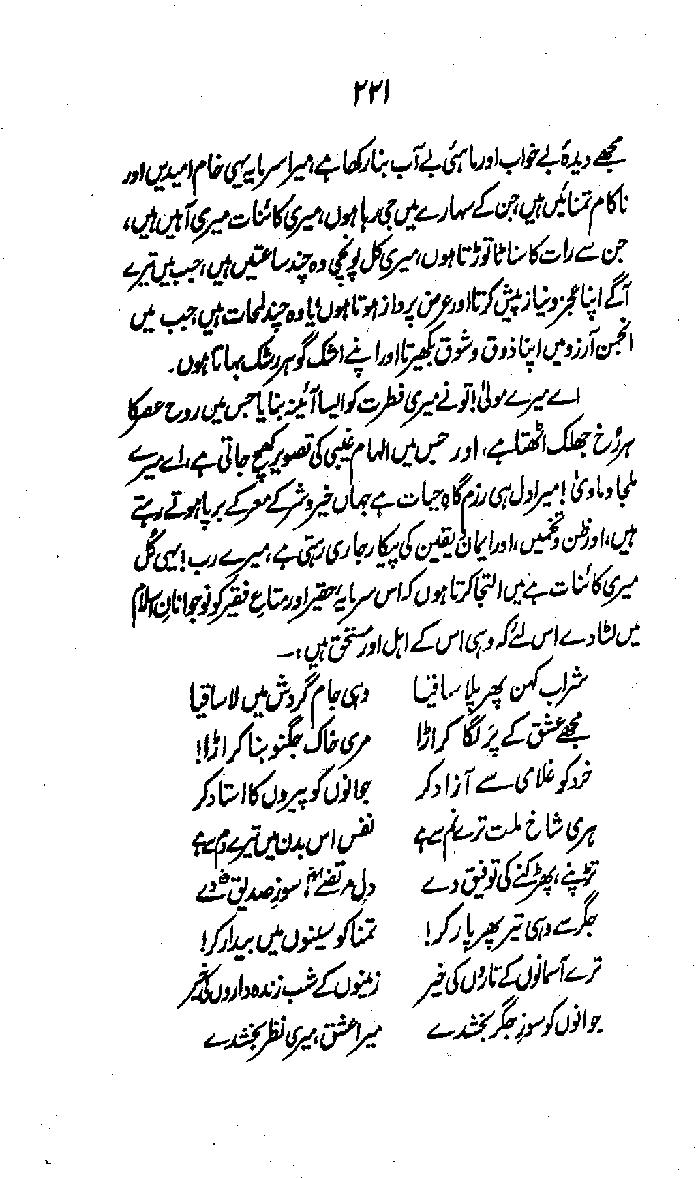 ۲۲۱
مجھے دیدۂ بے خواب اور ماہئ بے آب بنا رکھا ہے، میرا سرمایہ یہی خام امیدیں اور
ناکام تمنائیں ہیں، جن کے سہارے میں جی رہا ہوں، میری کائنات میری آہیں ہیں،
جن سے رات کا سناٹا توڑتا ہوں، میری کل پونجی وہ چند ساعتیں ہیں، جب میں تیرے
آگے اپنا عجز و نیاز پیش کرتا اور عرض پرداز ہوتا ہوں! یا وہ چند لمحات ہیں، جب میں
انجمن آرزو میں اپنا ذوق و شوق بکھیرتا اور اپنے اشک گوہر رشک بہاتا ہوں۔
اے میرے مولیٰ! تو نے میری فطرت کو ایسا آئینہ بنایا جس میں روح عصر کا
ہر رُخ جھلک اٹھتا ہے، اور جس میں الہام غیبی کی تصویر کھنچ جاتی ہے، اے میرے
ملجا و ماویٰ! میرا دل ہی رزم گاہِ حیات ہے جہاں خیر و شر کے معرکے برپا ہوتے رہتے
ہیں، اور ظن و تخمیں، اور ایمان و یقین کی پیکار جاری رہتی ہے، میرے رب! یہی کُل
میری کائنات ہے میں التجا کرتا ہوں کہ اس سرمایۂ حقیر اور متاعِ فقیر کو نوجوانانِ اسلام
میں لٹا دے اس لئے کہ وہی اس کے اہل اور مستحق ہیں:۔
شراب کہن پھر پلا ساقیا وہی جام گردش میں لا ساقیا
مجھے عشق کے پَر لگا کر اڑا مری خاک جگنو بنا کر اڑا!
خرد کو غلامی سے آزاد کر جوانوں کو پیروں کا استاد کر
ہری شاخ ملت ترے نم سے ہے نفس اس بدن میں تیرے دم سے ہے
تڑپنے، پھڑکنے کی توفیق دے دلِ مرتضےٰؓ، سوزِ صدیقؓ دے
جگر سے وہی تیر پھر پار کر! تمنا کو سینوں میں بیدار کر!
ترے آسمانوں کے تاروں کی خیر زمینوں کے شب زندہ داروں کی خیر
جوانوں کو سوزِ جگر بخشدے میرا عشق، میری نظر بخشدے